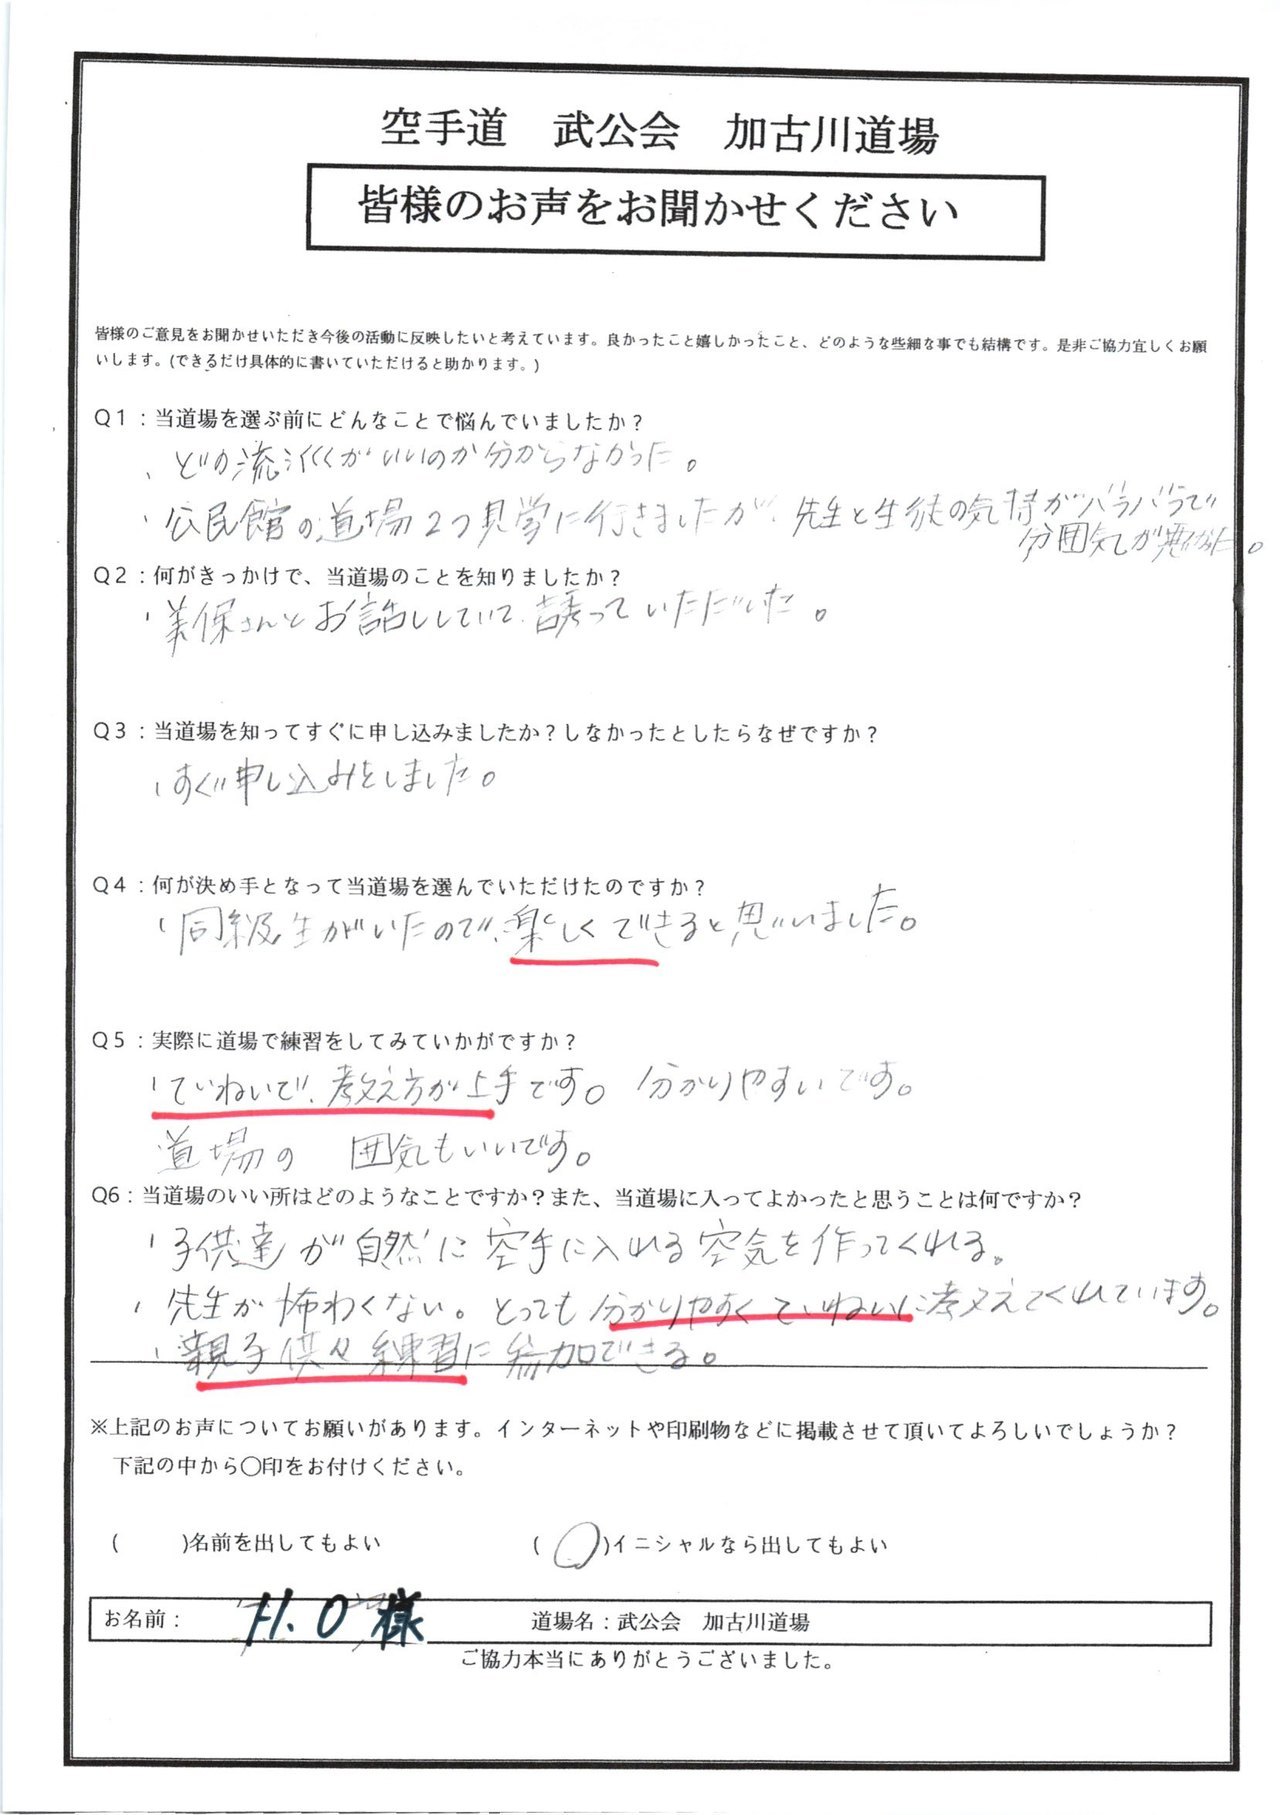 空手道　武公会　加古川道場
皆様のお声をお聞かせください
皆様のご意見をお聞かせいただき今後の活動に反映したいと考えています。良かったこと嬉しかったこと、どのような些細な事でも結構です。是非ご協力宜しくお願
いします。(できるだけ具体的に書いていただけると助かります。)
Q1：当道場を選ぶ前にどんなことで悩んでいましたか？
、どの流派がいいのか分からなかった。
・公民館の道場2つ見学に行きましたが、先生と生徒の気持がバラバラで
分囲気が悪かった。
Q2：何がきっかけで、当道場のことを知りましたか？
・美保さんとお話ししていて、誘っていただいた。
Q3：当道場を知ってすぐに申し込みましたか？しなかったとしたらなぜですか？
・すぐ申し込みをしました。
Q4：何が決め手となって当道場を選んでいただけたのですか？
・同級生がいたので、楽しくできると思いました。
Q5：実際に道場で練習をしてみていかがですか？
・ていねいで、教え方が上手です。分かりやすいです。
道場の　囲気もいいです。
Q6：当道場のいい所はどのようなことですか？また、当道場に入ってよかったと思うことは何ですか？
・子供達が自然に空手に入れる空気を作ってくれる。
・先生が怖わくない。とっても分かりやすくていねいに教えてくれています。
・親子供々練習に参加できる。
※上記のお声についてお願いがあります。インターネットや印刷物などに掲載させて頂いてよろしいでしょうか？
下記の中から〇印をお付けください。
(　　　)名前を出してもよい　　　(〇)イニシャルなら出してもよい
お名前：　H.O 様　　　道場名：武公会　加古川道場
ご協力本当にありがとうございました。